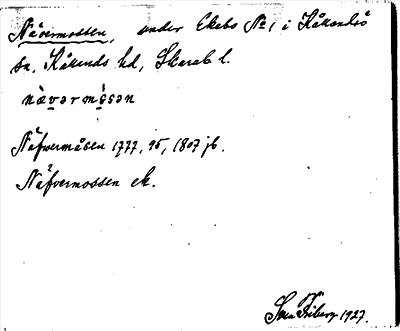 Nävermossen, under Ekebo No 1 i Kåkinds
sn, Kåkinds hd, Skarab. l.
nävərmåsən
Näfvermåsen 1777, 95, 1807 jb.
Näfvermossen ek.
Sven Friberg 1927.